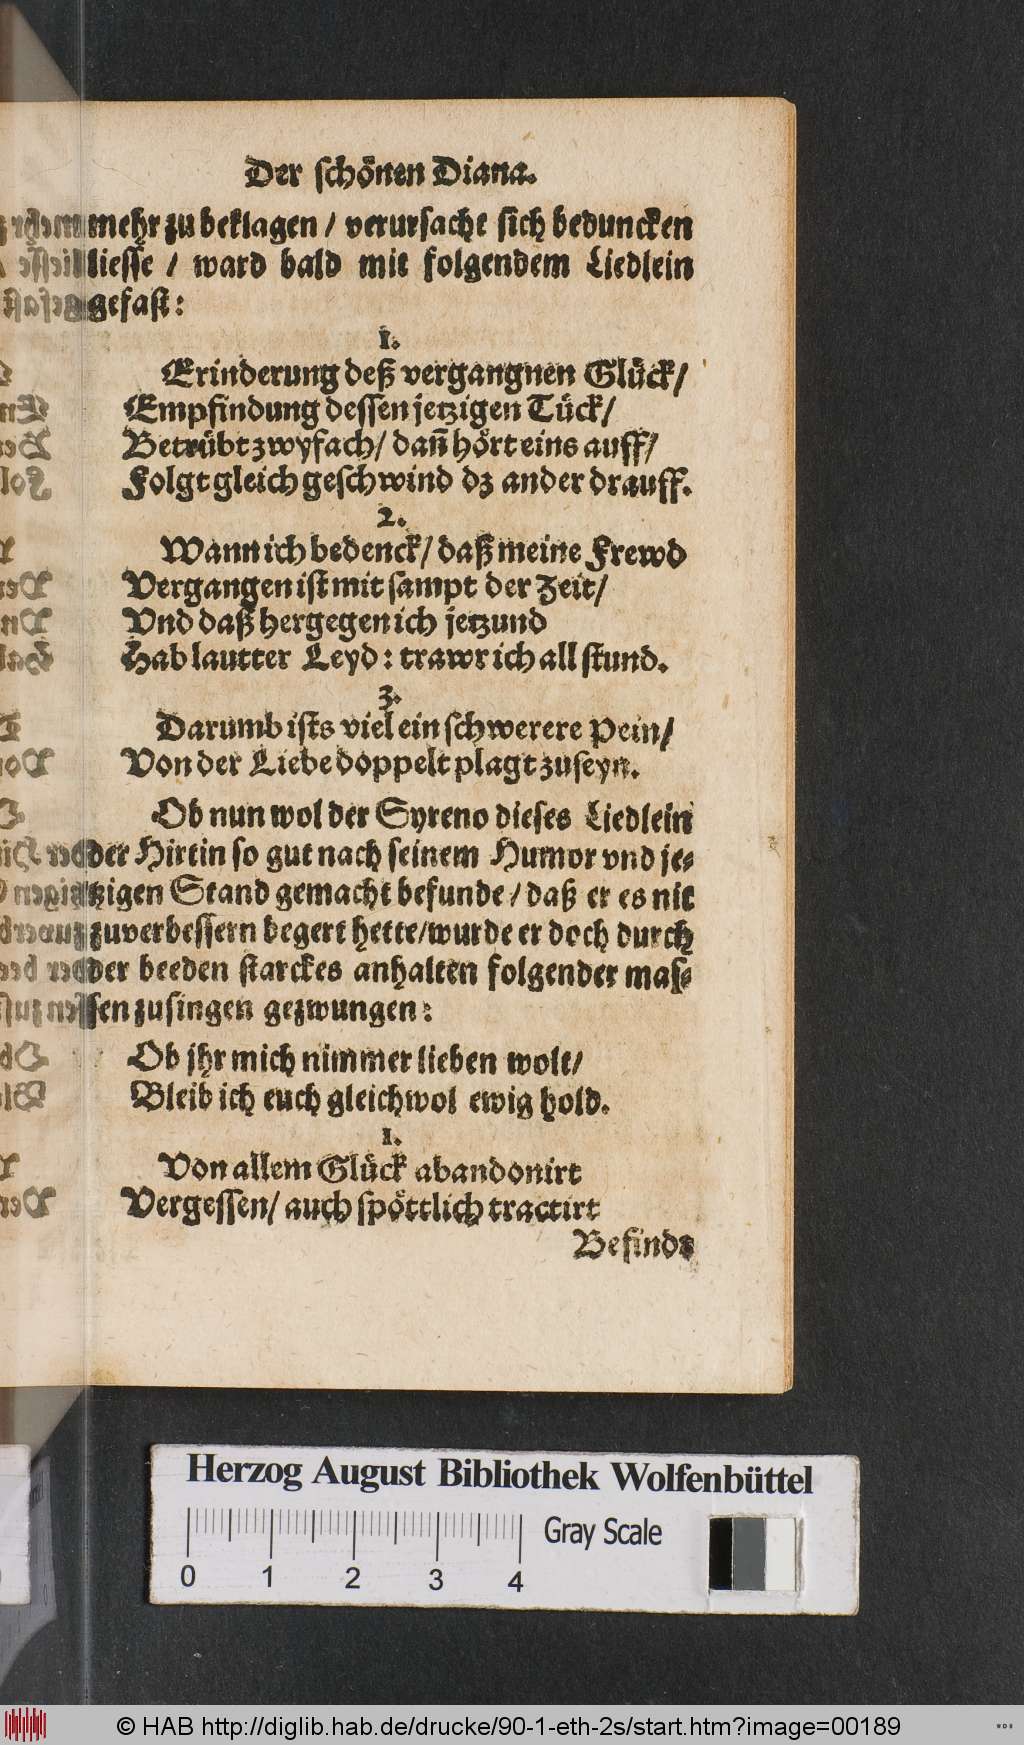 Der schönen Diana.
mehr zu beklagen / verursacht sich beduncken
liesse / ward bald mit folgendem Liedlein
gefast:
1.
Erinderung deß vergangnen Glück/
Empfindung dessen jetzigen Tück/
Betrübt zwyfach/ dañ hört eins auff/
Folgt gleich geschwind dz ander drauff.
2.
Wann ich bedenck/ daß meine Frewd
Vergangen ist mit sampt der Zeit/
Vnd daß hergegen ich jetzund
Hab lautter Leyd: trawr ich all stund.
3.
Darumb ists viel ein schwerere Pein/
Von der Liebe doppelt plagt zuseyn.
Ob nun wol der Syreno dieses Liedlein
der Hirtin so gut nach seinem Humor vnd je-
tzigen Stand gemacht befunde / daß er es nit
zuverbessern begert hette/wurde er doch durch
der beeden starckes anhalten folgender mas-
sen zusingen gezwungen:
Ob jhr mich nimmer lieben wolt/
Bleib ich euch gleichwol ewig hold.
1.
Von allem Glück abandonirt
Vergessen/ auch spöttlich tractirt
Befindt
Herzog August Bibliothek Wolfenbüttel
Gray Scale
0 1 2 3 4
© HAB http://diglib.hab.de/drucke/90-1-eth-2s/start.htm?image=00189